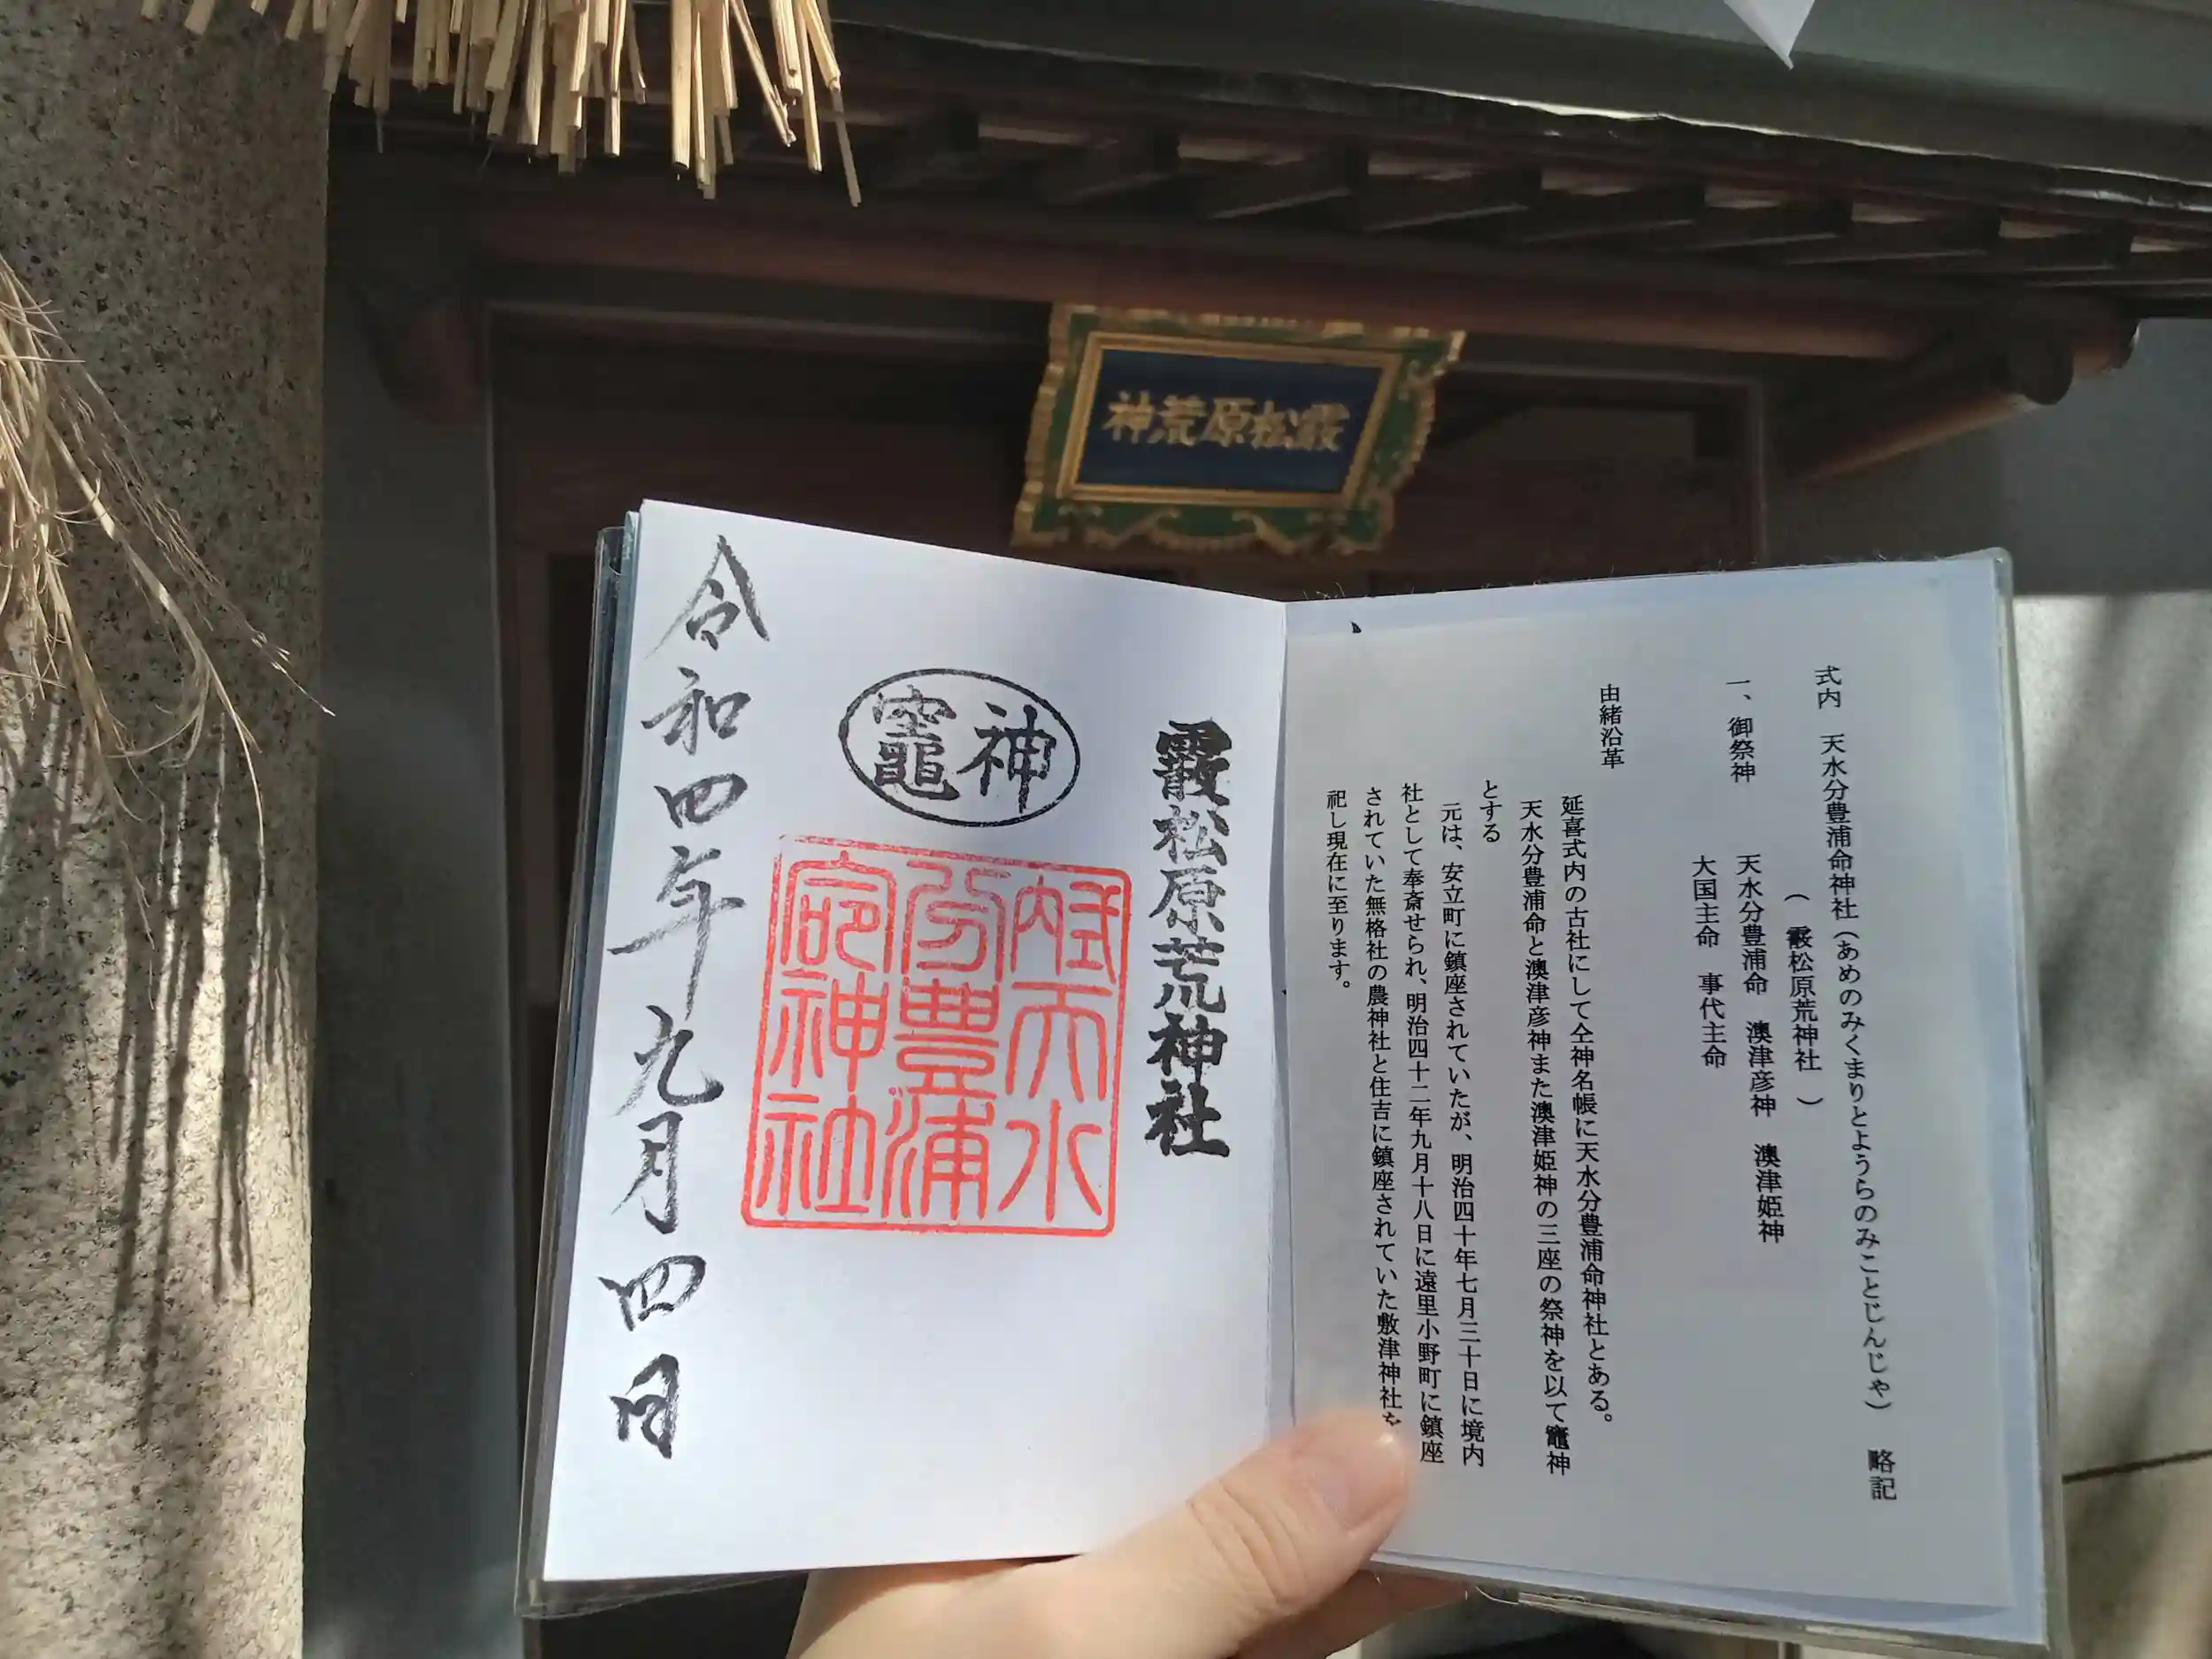 霰松原荒神
式内 天水分豊浦命神社(あめのみくまりとようらのみことじんじゃ) 略記
(霰松原荒神社)
一、御祭神 天水分豊浦命 澳津彦神 澳津姫神
大国主命 事代主命
由緒沿革
延喜式内の古社にして仝神名帳に天水分豊浦命神社とある。
天水分豊浦命と澳津彦神また澳津姫神の三座の祭神を以て竈神
とする
元は、安立町に鎮座されていたが、明治四十年七月三十日に境内
社として奉斎せられ、明治四十二年九月十八日に遠里小野町に鎮座
されていた無格社の農神社と住吉に鎮座されていた敷津神社を
祀し現在に至ります。
霰松原荒神社
神竈
天水
分豊浦
命神社
令和四年九月四日